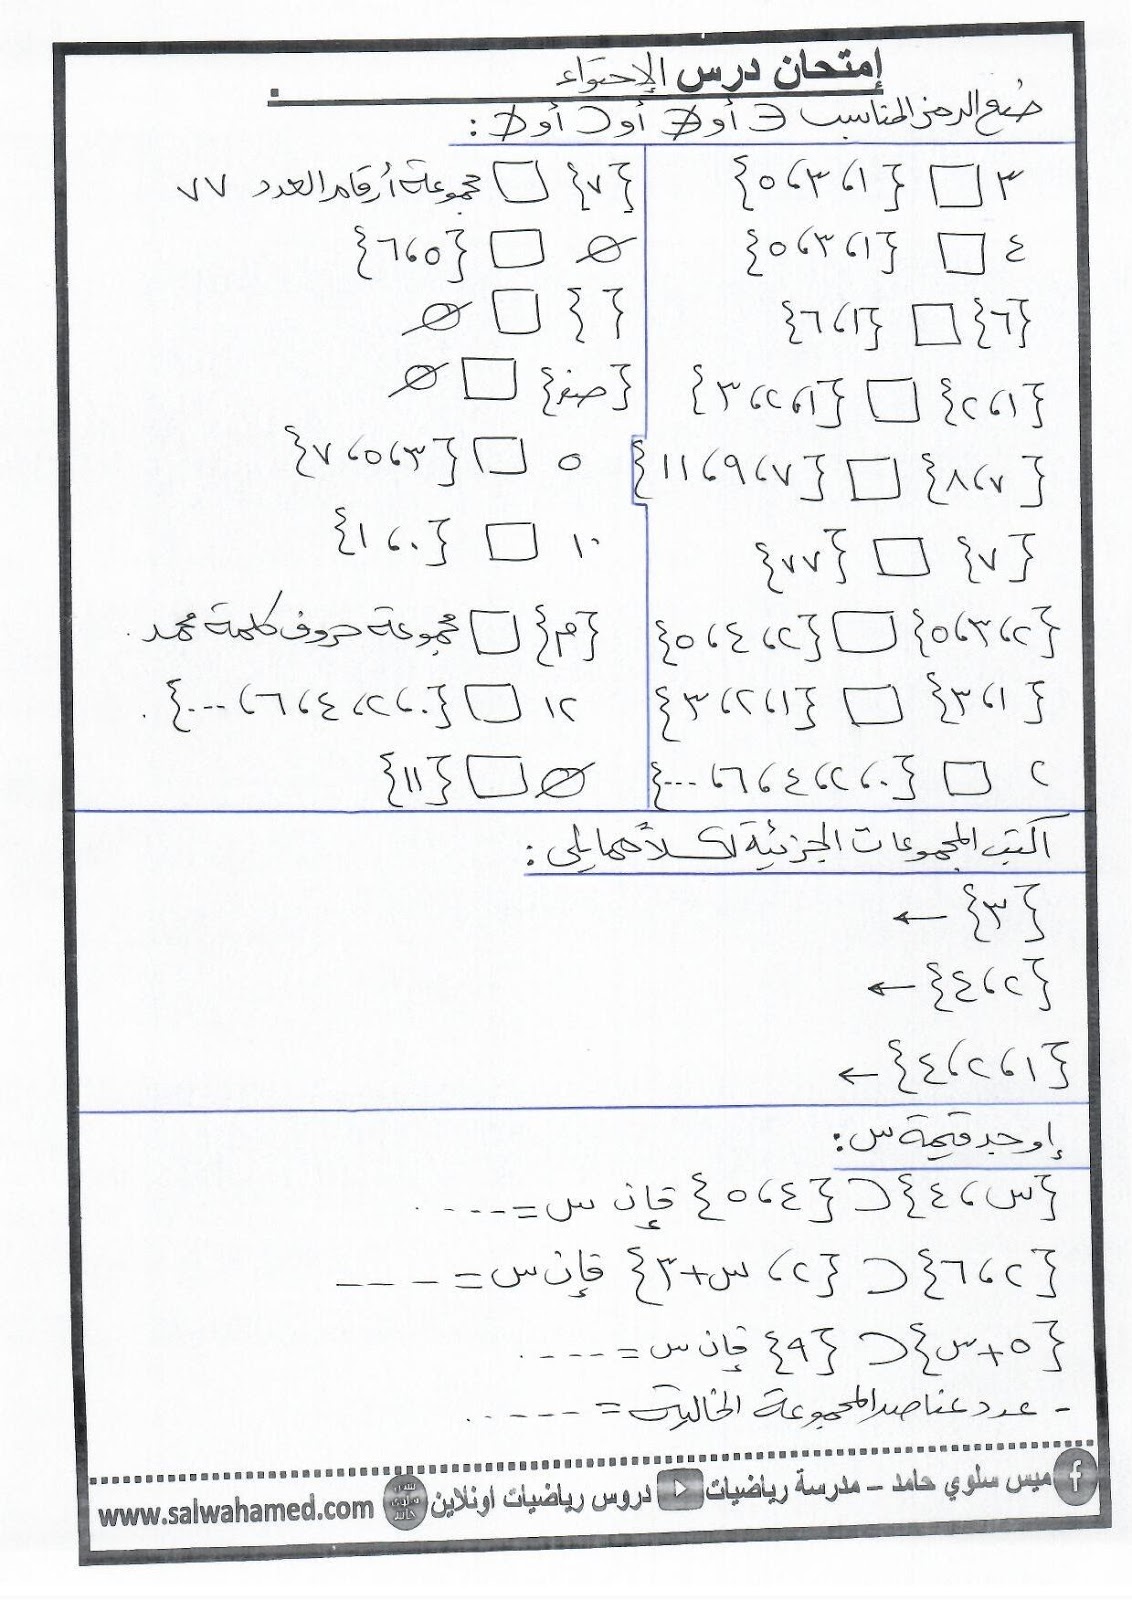 إمتحان درس الإحتواء .
ضع الرمز المناسب ∈ أو ∉ أو ⊂ أو ⊄ :
٣ □ {١، ٣، ٥}
٤ □ {١، ٣، ٥}
{٦} □ {١، ٦}
{١، ٢} □ {١، ٢، ٣}
{٧، ٨} □ {٧، ٩، ١١}
{٧} □ {٧٧}
{٢، ٣، ٥} □ {٢، ٤، ٥}
{١، ٣} □ {١، ٢، ٣}
٢ □ {٠، ٢، ٤، ٦، ...}
{٧} □ مجموعة أرقام العدد ٧٧
∅ □ {٥، ٦}
{ } □ ∅
{صفر} □ ∅
٥ □ {٣، ٥، ٧}
١٠ □ {٠، ١}
{م} □ مجموعة حروف كلمة محمد .
١٢ □ {٠، ٢، ٤، ٦، ...} .
∅ □ {١١}
أكتب المجموعات الجزئية لكلاً مما يلى :
{٣} ←
{٢، ٤} ←
{١، ٢، ٤} ←
إوجد قيمة س :
{س، ٤} ⊂ {٤، ٥} فإن س = ....
{٢، ٦} ⊂ {٢، س+٣} فإن س = ---
{٥+س} ⊂ {٩} فإن س = ....
- عدد عناصر المجموعة الخالية = .....
ميس سلوي حامد – مدرسة رياضيات دروس رياضيات اونلاين www.salwahamed.com